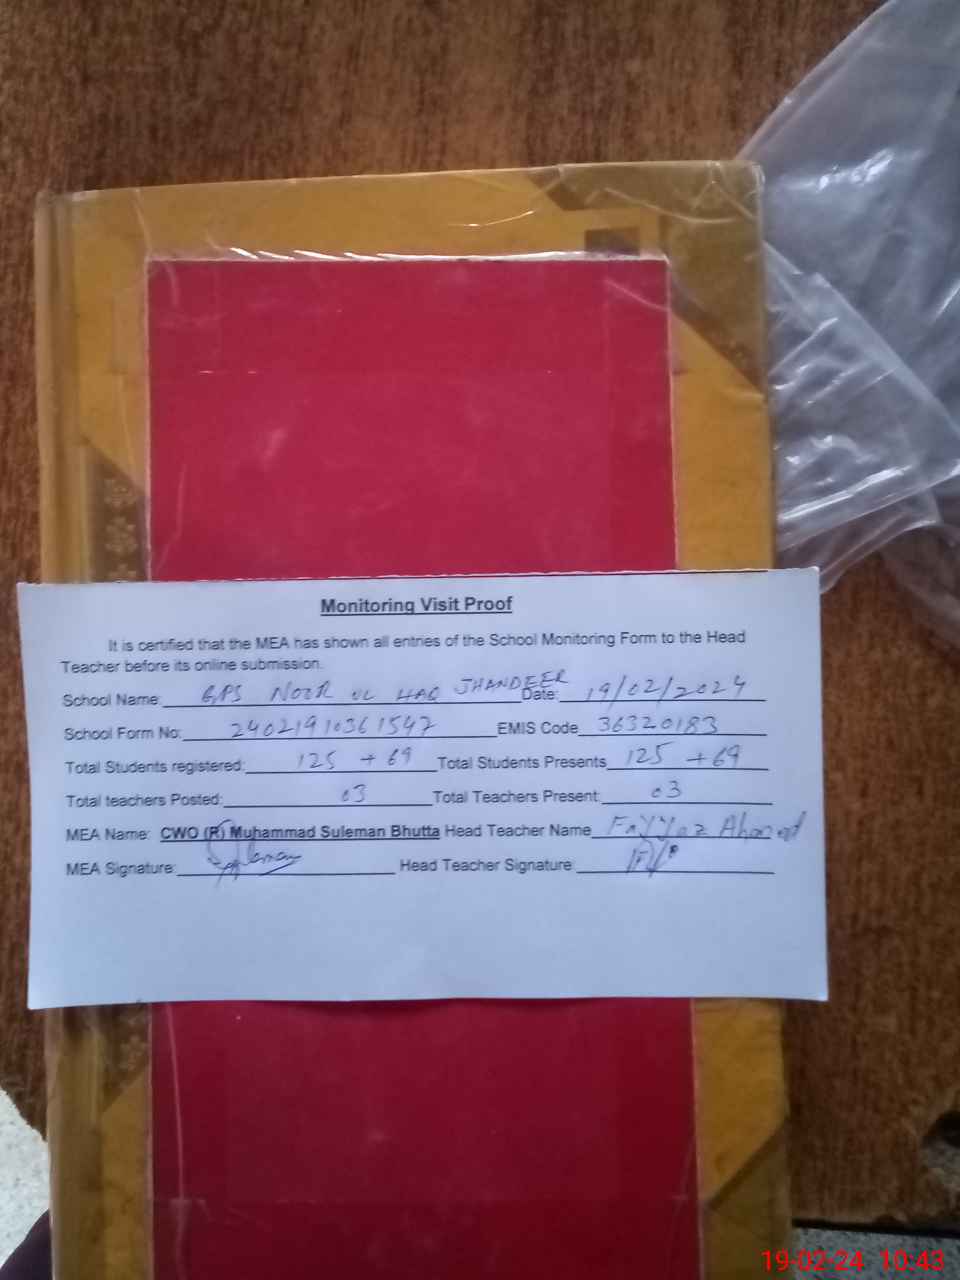 Monitoring Visit Proof
It is certified that the MEA has shown all entries of the School Monitoring Form to the Head
Teacher before its online submission.
School Name: GPS NOOR UL HAQ JHANDEER Date: 19/02/2024
School Form No: 24021910361547 EMIS Code 36320183
Total Students registered: 125 + 69 Total Students Presents 125 + 69
Total teachers Posted: 03 Total Teachers Present: 03
MEA Name: CWO (R) Muhammad Suleman Bhutta Head Teacher Name Fayyaz Ahmed
MEA Signature: Head Teacher Signature:
19-02-24 10:43